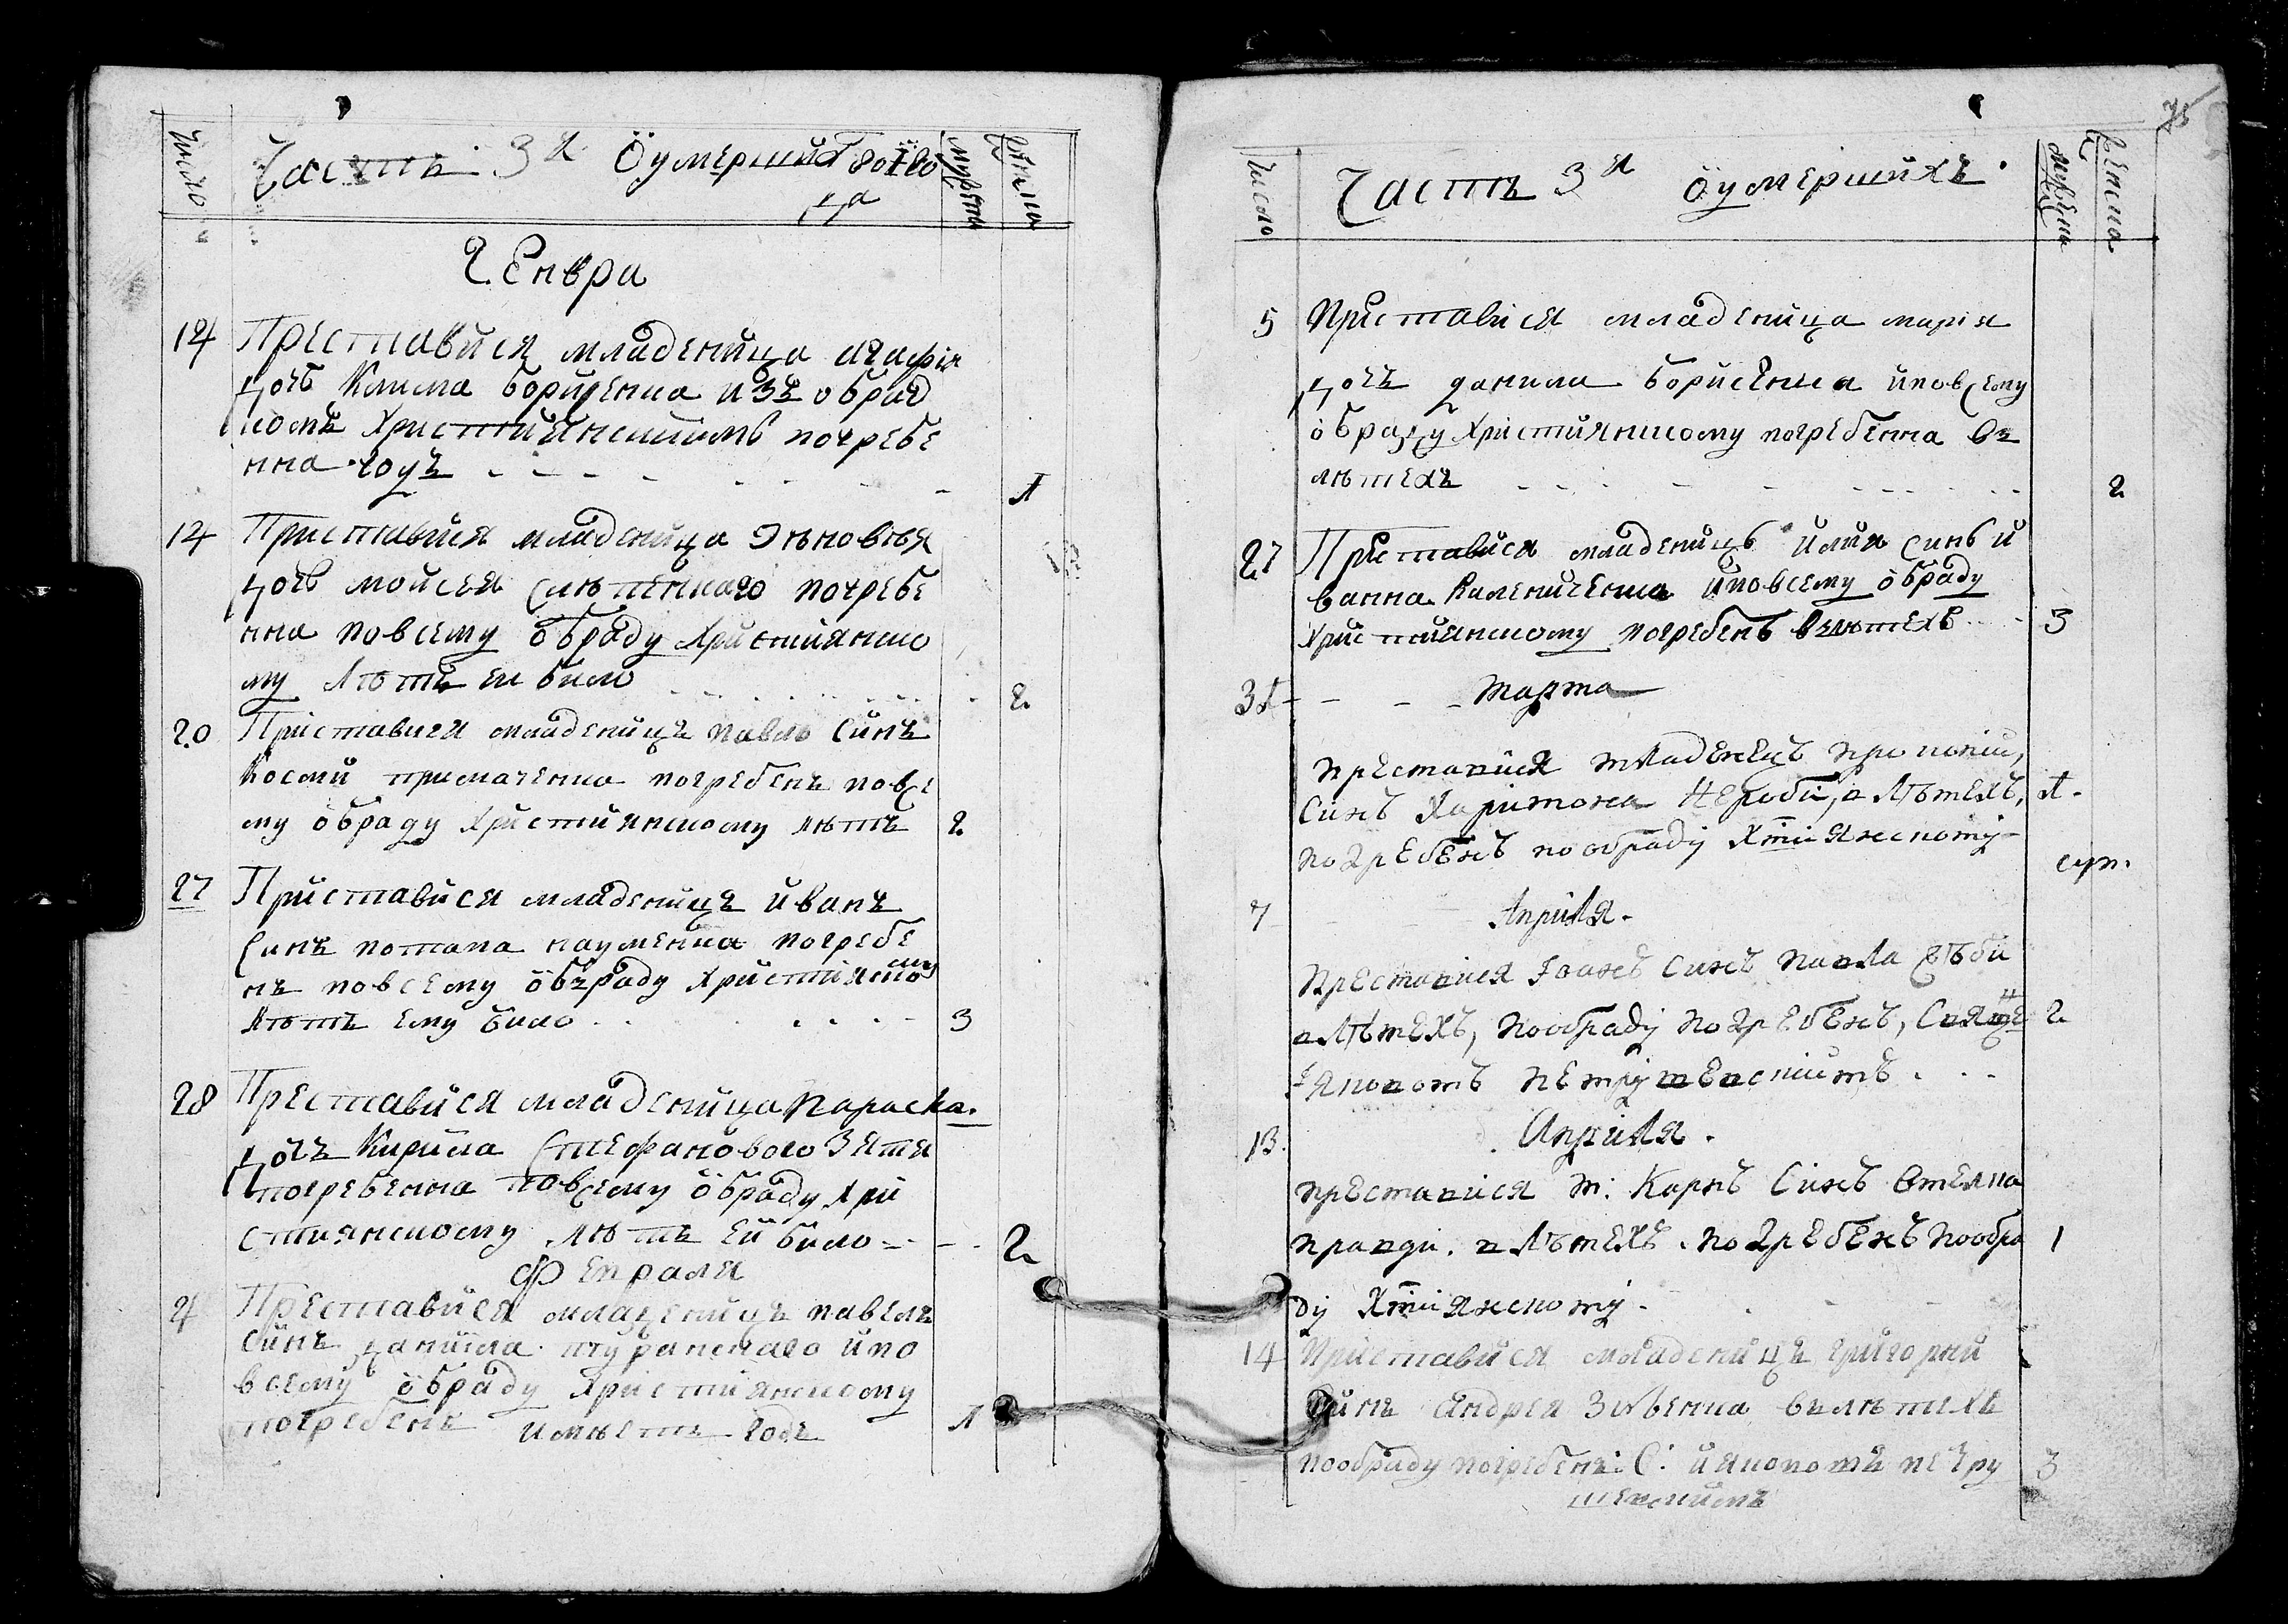 Число
Часть 3я О умершихъ 801го
да
мужеска
женска
Генвра
14 Преставися младеница агафія
дочь Клима борисенка изъ обряд
комъ Християнскимъ погребе
нна годъ 1
14 Приставися младеница Зѣновѣя
дочь мойсея погребе
нна повсему обряду Християнско
му лѣтъ еи било 2
20 Приставися младеницъ павло синъ
Косми примаченка погребенъ повсе
му обряду Християнскому лѣтъ 2
27 Приставися младеницъ иванъ
синъ потапа науменка погребе
нъ повсему обряду Християнскому
лѣтъ ему било 3
28 Преставися младеница Параска
дочъ Кирила Стефанового Зятя
погребенна повсему обряду Хри
стиянскому лѣтъ ей било 2
Февраля
4 Преставися младеницъ павелъ
синъ данiила туранскаго и по
всему обряду Християнскому
погребенъ имѣетъ годъ 1
75
Число
Часть 3я О умершихъ
мужеска
женска
5 Приставися младеница марія
дочъ данила борисенка и повсему
обряду Християнскому погребенна въ
лѣтехъ 2
27 Приставися младеницъ илия синъ и
ванна Каленишенка и повсему обряду
Християнскому погребенъ в лѣтехъ 3
31 Марта
Преставися младенецъ
Синъ Харитона в лѣтехъ, 1.
погребенъ по обряду Хтиянскому
7 Апріля.
Преставися Іоанъ Синъ Павла
в лѣтехъ, по обряду погребенъ, Свяще 2
Іяковомъ Петрушевскимъ
13. Апріля.
Преставися м: Карпъ Синъ
Правди. в лѣтехъ. погребенъ по обра 1
ду Хтиянскому.
14 Приставися младеницъ григорий
синъ андрея Зубенка в лѣтехъ
по обряду погребенъ: С: и яковомъ петру 3
шевскимъ